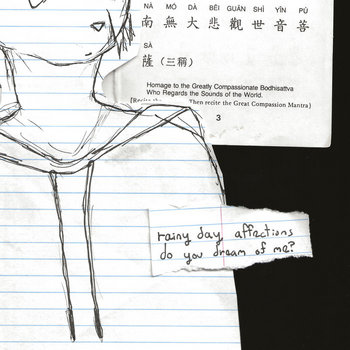 NÀ MÓ DÀ BĒI GUĀN SHÌ YĪN PÚ
南 無 大 悲 觀 世 音 菩
SÀ
薩 (三稱)
Homage to the Greatly Compassionate Bodhisattva
Who Regards the Sounds of the World.
Then recite the Great Compassion Mantra)
3
rainy day affections
do you dream of me?